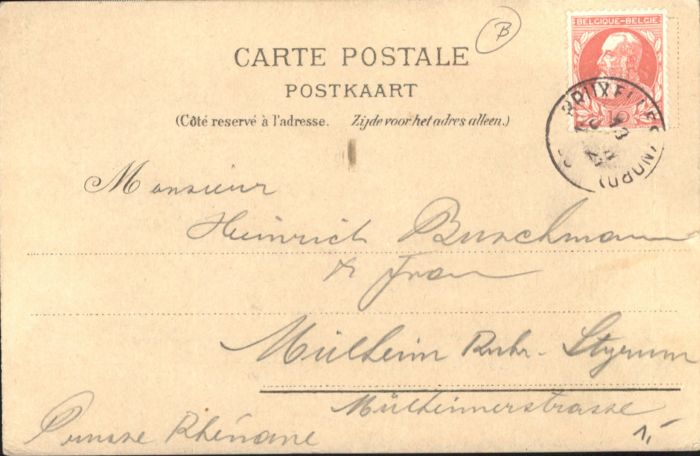 B
CARTE POSTALE
BELGIQUE-BELGIE
POSTKAART
(Côté reservé à l'adresse. Zijde voor het adres alleen.)
BRUXELLES (NORD)
Monsieur
Heinrich Buschmann
& Frau
Mülheim Ruhr-Styrum
Mülheimerstrasse
Prusse Rhénane
1,-